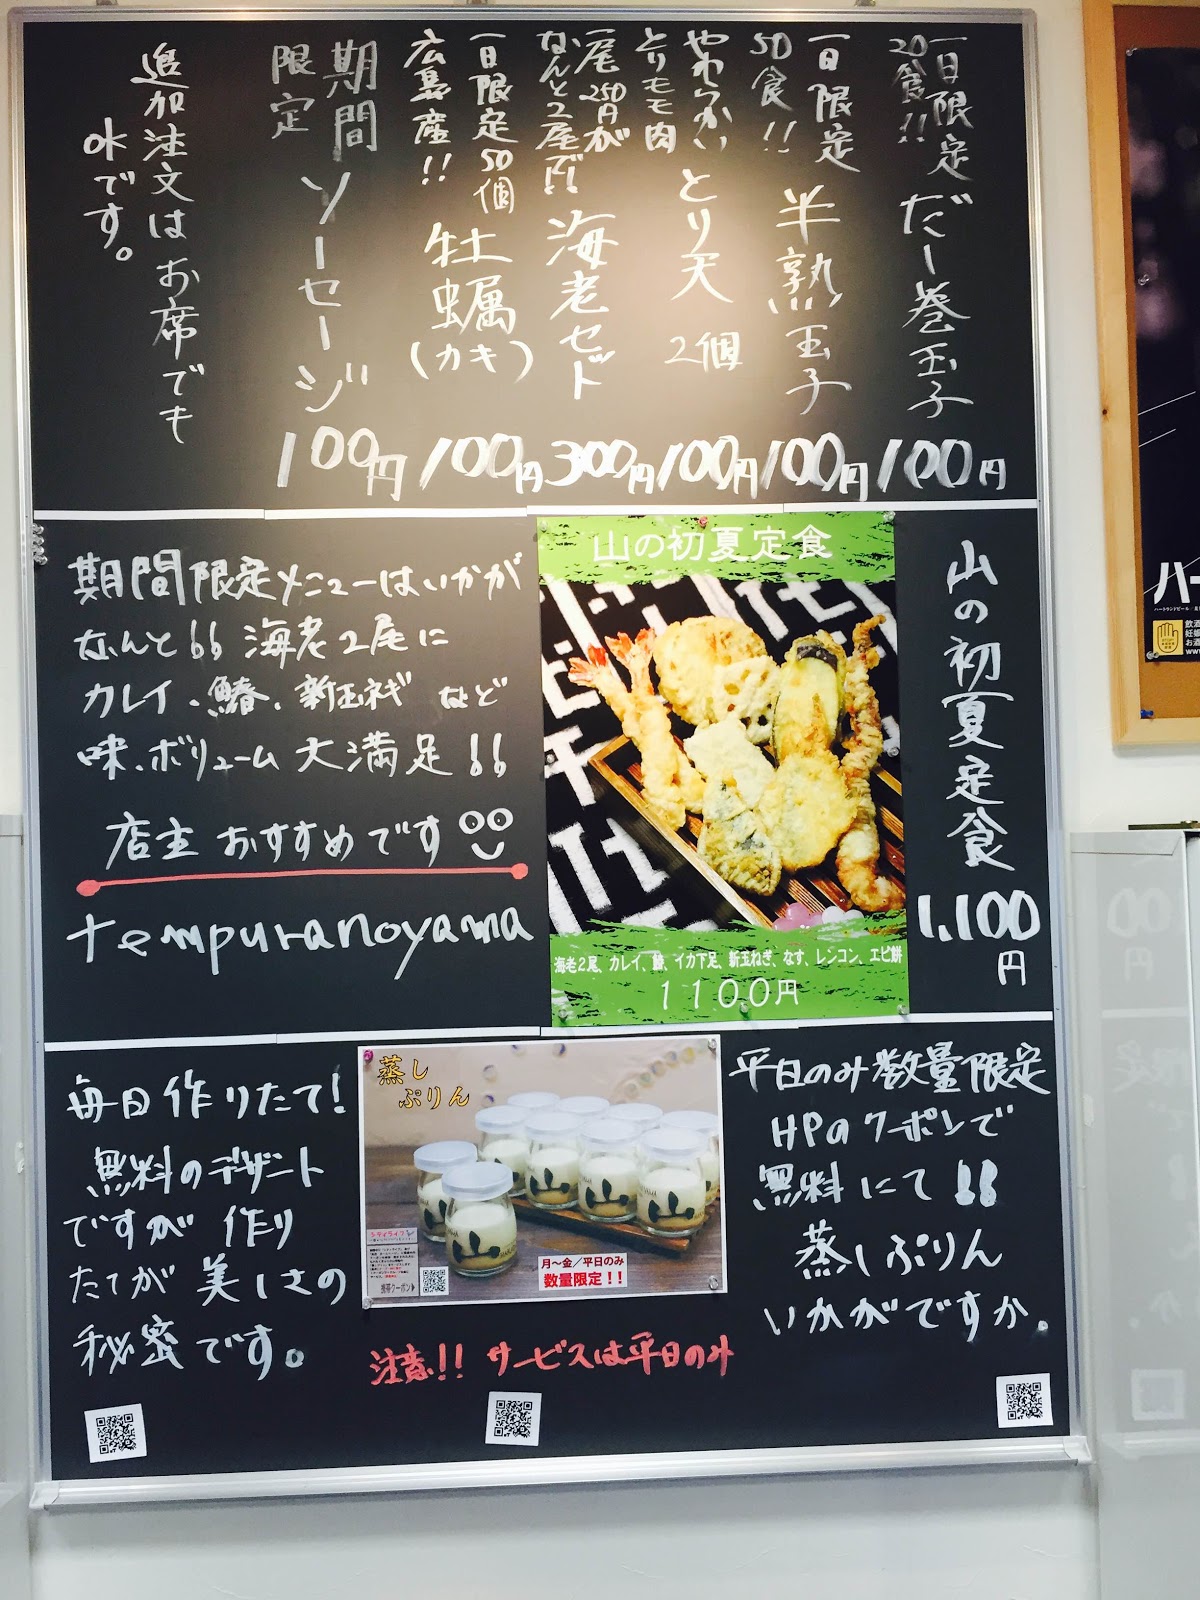 一日限定
20食!!
だし巻玉子
100円
一日限定
50食!!
半熟玉子
100円
やわらかい
とりモモ肉
とり天 2個
100円
一尾250円が
なんと2尾で!!
海老セット
300円
一日限定50個
広島産!!
牡蠣
(カキ)
100円
期間
限定
ソーセージ
100円
追加注文はお席でも
OKです。
期間限定メニューはいかが
なんと!!海老2尾に
カレイ、鰆、新玉ネギ など
味、ボリューム大満足!!
店主おすすめです
tempuranoyama
山の初夏定食
海老2尾、カレイ、鰆、イカ下足、新玉ねぎ、なす、レンコン、エビ餅
1100円
山の初夏定食
1,100
円
毎日作りたて!
無料のデザート
ですが 作り
たてが美しさの
秘密です。
蒸し
ぷりん
山
山
山
山
月〜金/平日のみ
数量限定!!
携帯クーポン
注意!! サービスは平日のみ
平日のみ数量限定
HPのクーポンで
無料にて!!
蒸しぷりん
いかがですか。
ハー